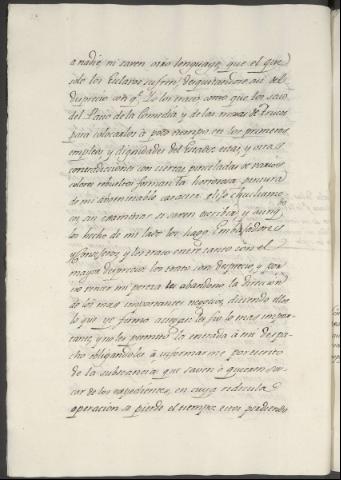 a nadie, ni saven otro lenguage que el que
solo los Esclavos sufren, desquitandome asi del
desprecio con qe. los trato, como que los saco
del Patio de la Comedia, y de las mesas de trucos
para colocarlos à poco tiempo en los primeros
empleos y dignidades del Estado: estas, y otras
contradicciones con ciertas pinceladas de varios
colores rebueltos forman la horrorosa pintura
de mi abominable caracter: elijo
en sin examinar si saven escribir, y aunq.
los hecho de mi lado los hago Embajadores
y Consejeros, y los trato entre tanto con el
mayor desprecio: los trato con desprecio, y por
no vencer mi pereza les abandono la direccion
de los mas importantes negocios, diciendo ellos
lo que yo firmo aunque les fie lo mas impor-
tante, y no les permito la entrada à mi despa-
cho obligandoles à informarme por escrito
de la substancia que saven ò quieren sa-
car de los expedientes, en cuya ridicula
operacion se pierde el tiempo, estos perdiendo